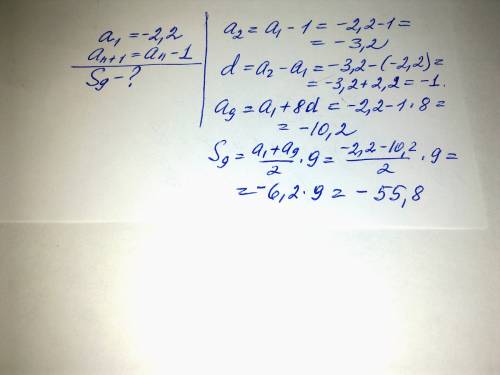 a₁ = -2,2
aₙ₊₁ = aₙ - 1
S₉ - ?
a₂ = a₁ - 1 = -2,2 - 1 =
= -3,2
d = a₂ - a₁ = -3,2 - (-2,2) =
= -3,2 + 2,2 = -1.
a₉ = a₁ + 8d = -2,2 - 1 · 8 =
= -10,2
S₉ = (a₁ + a₉)/2 · 9 = (-2,2 - 10,2)/2 · 9 =
= -6,2 · 9 = -55,8